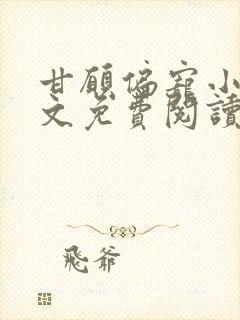 甘願偏寵小
文免費閱讀
飛爺